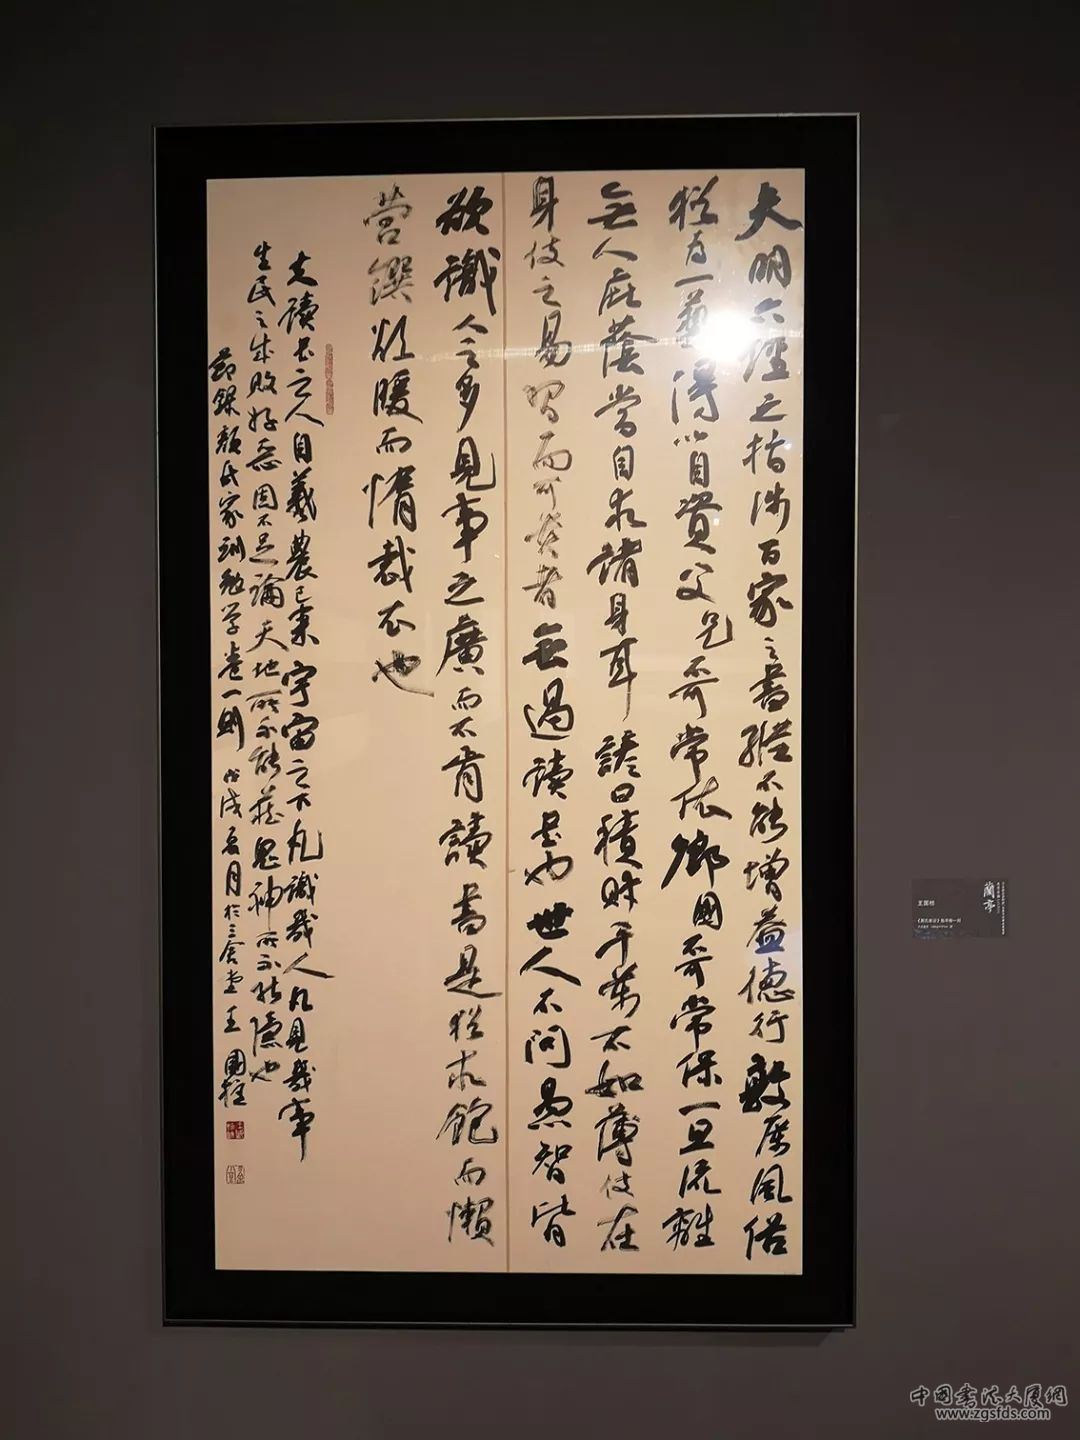 夫明六經之指涉百家之書縱不能增益德行敦厲風俗
猶為一藝得以自資父兄不可常依鄉國不可常保一旦流離
無人庇蔭當自求諸身耳諺曰積財千萬不如薄伎在
身伎之易習而可貴者無過讀書也世人不問愚智皆
欲識人之多見事之廣而不肯讀書是猶求飽而懶
營饌欲暖而惰裁衣也
夫讀書之人自羲農已來宇宙之下凡識幾人凡見幾事
生民之成敗好惡固不足論天地所不能藏鬼神所不能隱也
節錄顏氏家訓勉學卷一則 戊戌夏月於三舍堂王國柱
蘭亭
王国柱
中國書法大廈網
www.zgsfds.com